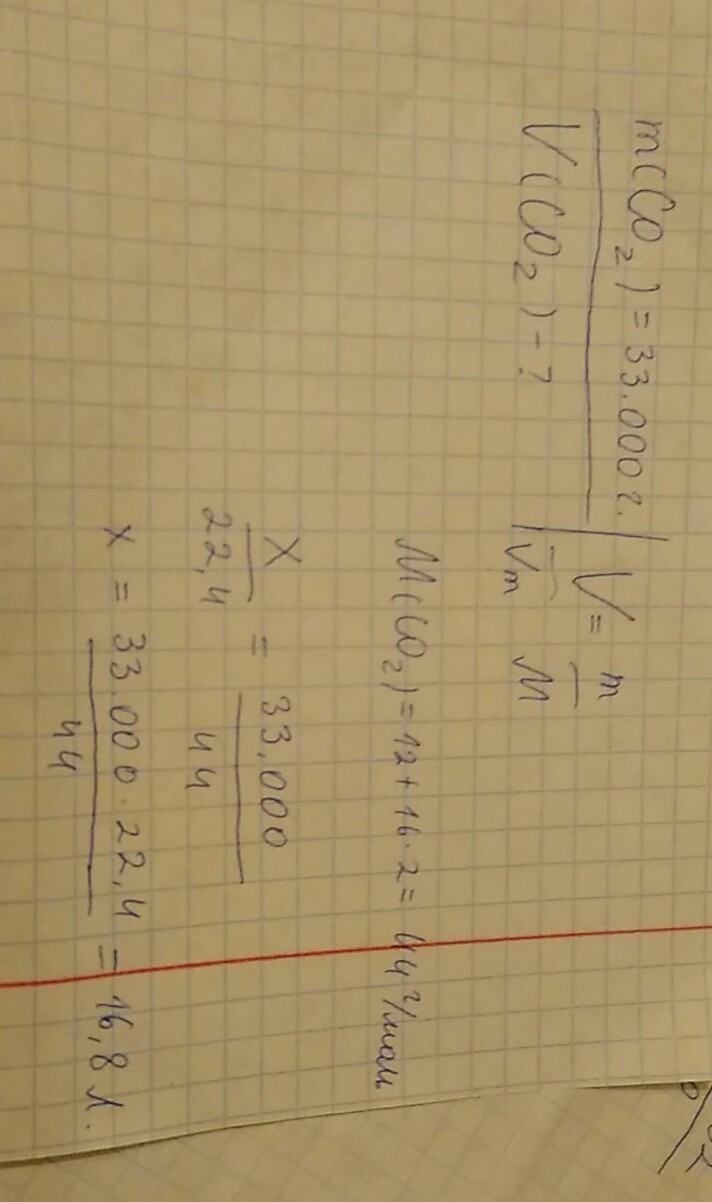 m(CO₂) = 33.000 г.
V(CO₂) - ?
V/Vm = m/M
M(CO₂) = 12 + 16 · 2 = 44 г/моль
x/22,4 = 33.000/44
x = 33.000 · 22,4/44 = 16,8 л.